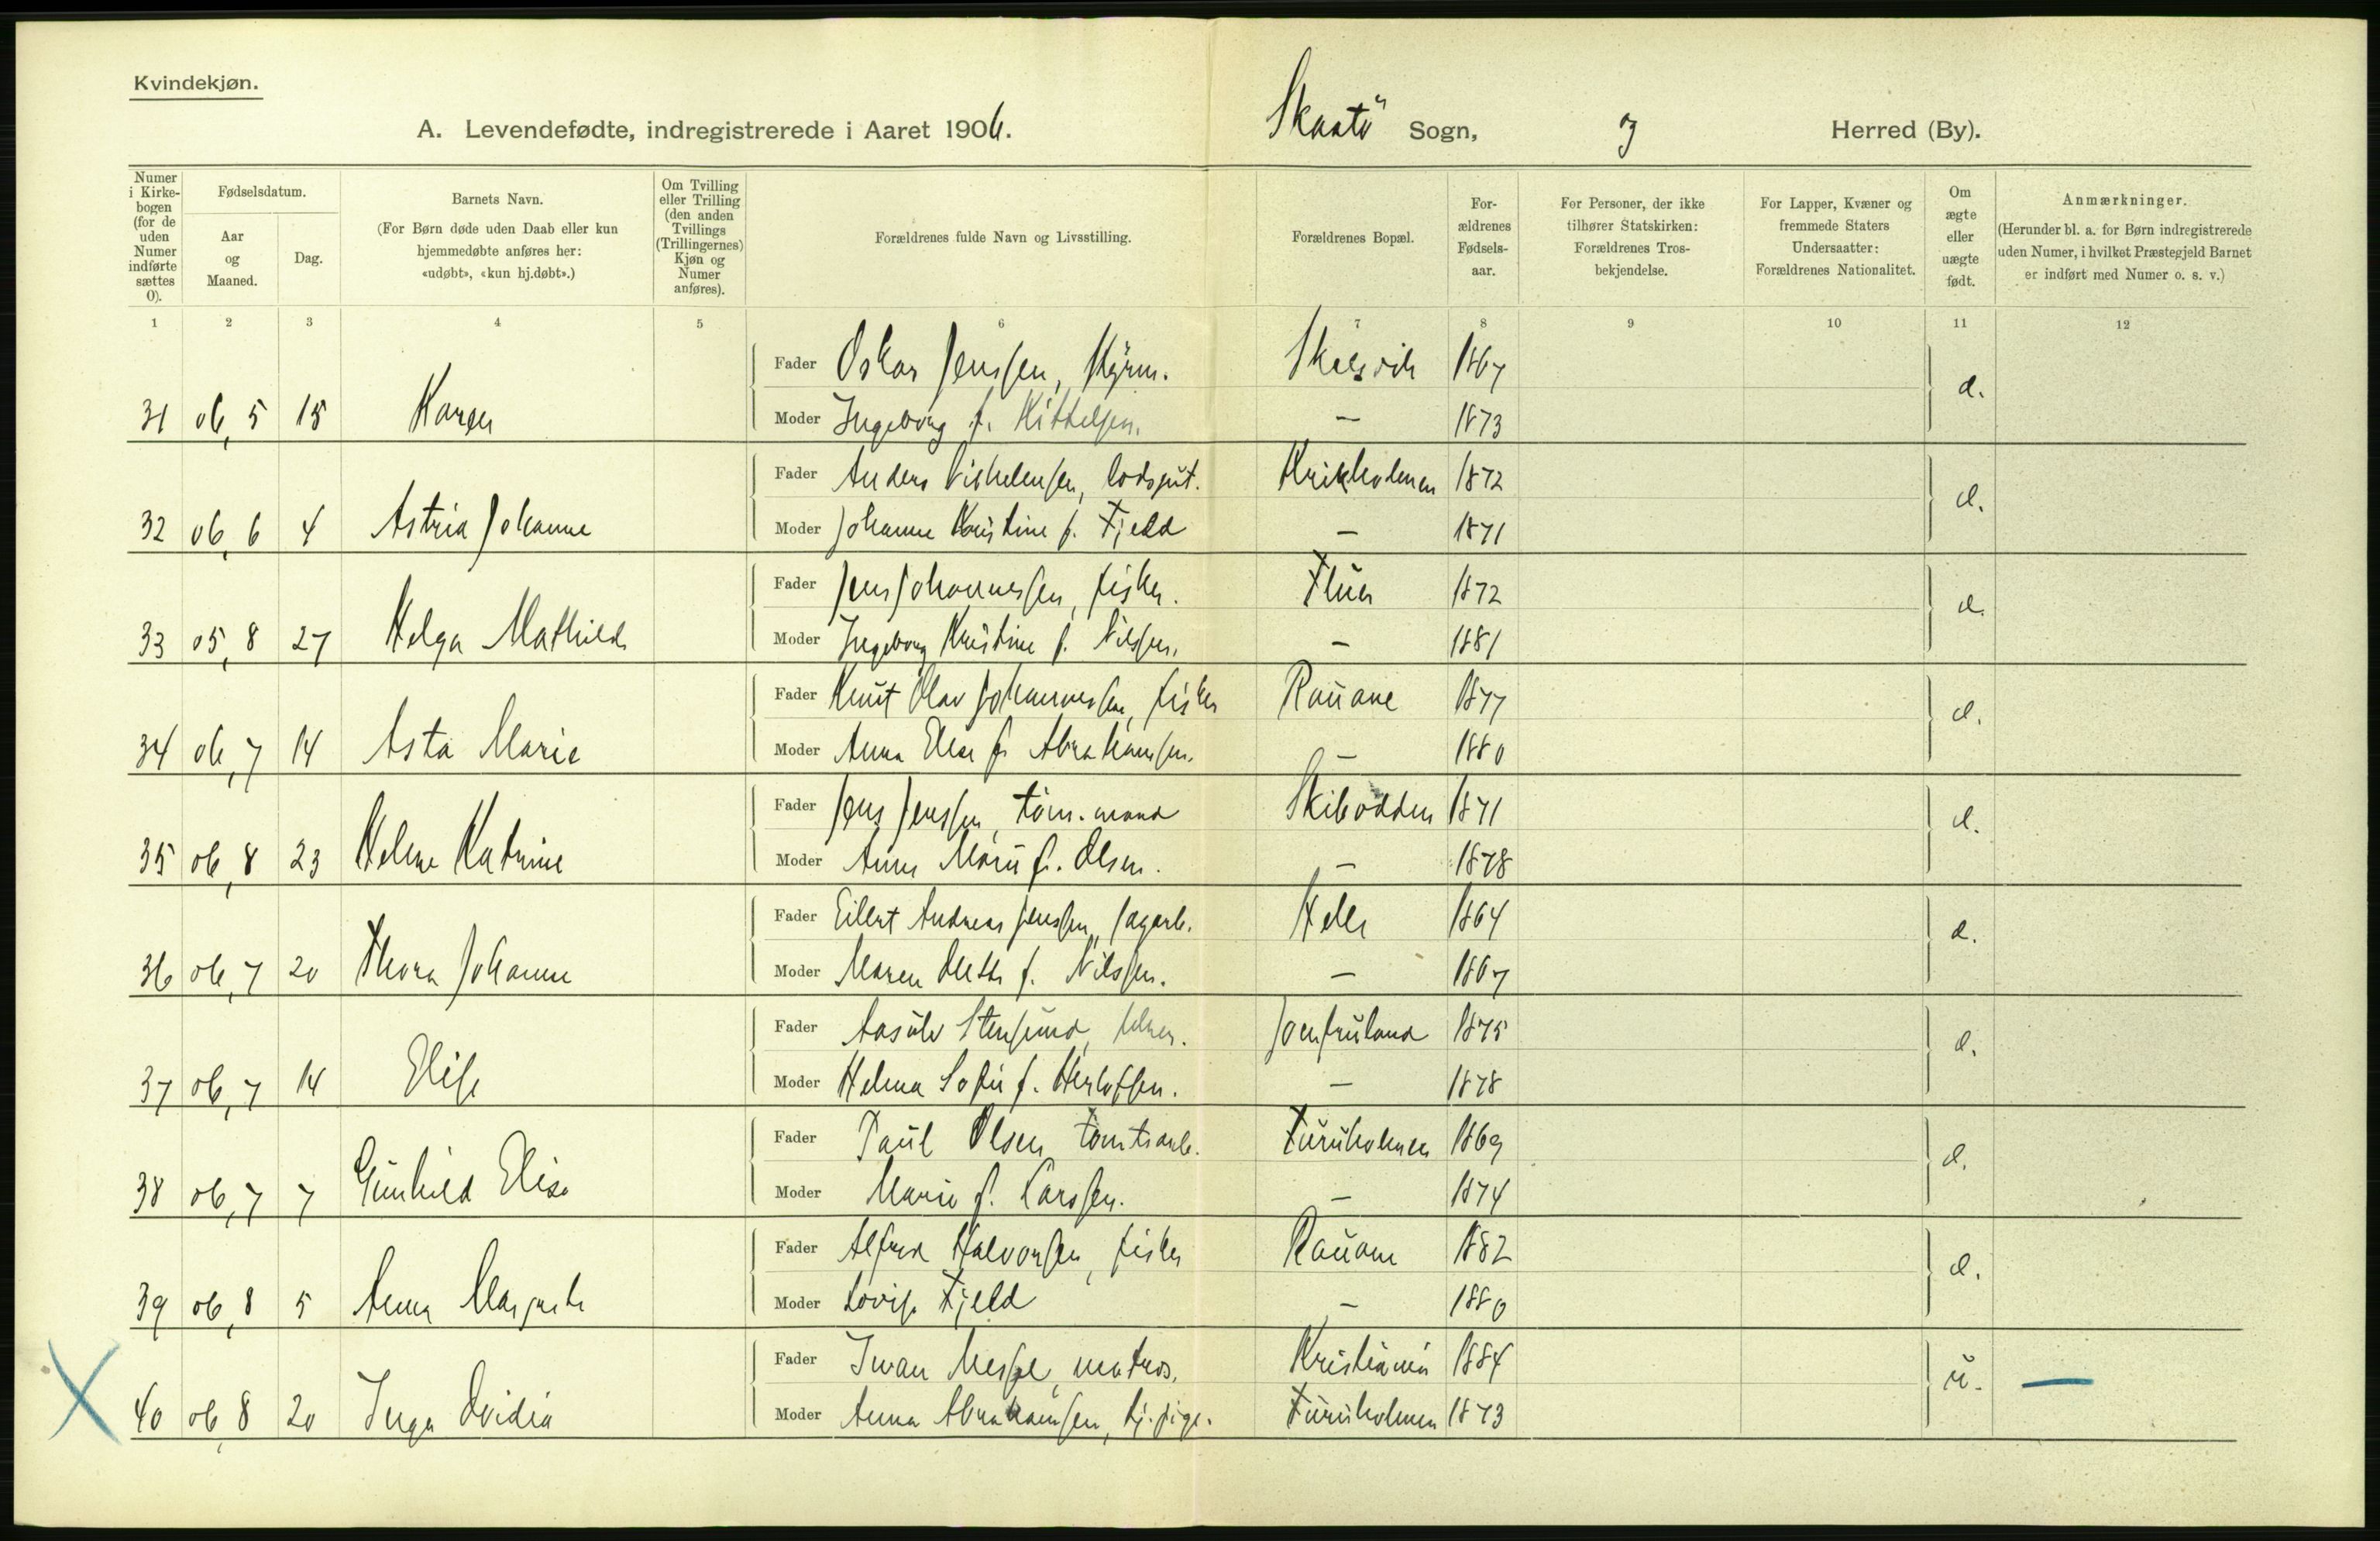 Kvindekjøn.
A. Levendefødte, indregistrerede i Aaret 1906. Skaatö Sogn, og Herred (By).
Numer i Kirkebogen (for de uden Numer indførte sættes 0).
Fødselsdatum.
Aar og Maaned.
Dag.
Barnets Navn.
(For Børn døde uden Daab eller kun hjemmedøbte anføres her: «udøbt», «kun hj.døbt».)
Om Tvilling eller Trilling (den anden Tvillings (Trillingernes) Kjøn og Numer anføres).
Forældrenes fulde Navn og Livsstilling.
Forældrenes Bopæl.
Forældrenes Fødselsaar.
For Personer, der ikke tilhører Statskirken: Forældrenes Trosbekjendelse.
For Lapper, Kvæner og fremmede Staters Undersaatter: Forældrenes Nationalitet.
Om ægte eller uægte født.
Anmærkninger.
(Herunder bl. a. for Børn indregistrerede uden Numer, i hvilket Præstegjeld Barnet er indført med Numer o. s. v.)
1 2 3 4 5 6 7 8 9 10 11 12
Fader Oskar Jenssen, styrm. 1867
31 06, 5 15 Karen
Moder Ingeborg f. Kittelsen. — 1873
Fader Anders Vilhelmsen, lodsgut. Krikholmen 1872
32 06, 6 4 Johanne
Moder Johanne Kristine f. Fjeld — 1871
Fader Jens Johannessen, fisker. 1872
33 05, 8 27 Helga Mathilde
Moder Ingeborg Kristine f. Nilssen. — 1881
Fader Knut Olav Johannessen, fisker Rauane 1877
34 06, 7 14 Asta Marie
Moder Anna Elise f. Abrahamsen. — 1880
Fader Jens Jenssen, töm.mand Skibodden 1871
35 06, 8 23 Helene Katrine
Moder Anne Marie f. Olsen. — 1878
Fader Eilert Andreas Jenssen, sagarb. Helle 1864
36 06, 7 20 Thora Johanne
Moder Maren f. Nilssen. — 1867
Fader Aasulv Stensund, Jomfruland 1875
37 06, 7 14 Elise
Moder Helma Sofie f. Herlofsen. — 1878
Fader Paul Olsen tomtearb. Furuholmen 1869
38 06, 7 7 Gunhild Elise
Moder Marie f. Larssen. — 1874
Fader Alfred Halvorsen, fisker Rauane 1882
39 06, 8 5 Anna Margrethe
Moder Lovise Fjeld — 1880
Fader Iwan matros. Kristiania 1884
40 06, 8 20 Inga Ovidia u. —
Moder Anna Abrahamsen, tj.pige. Furuholmen 1873